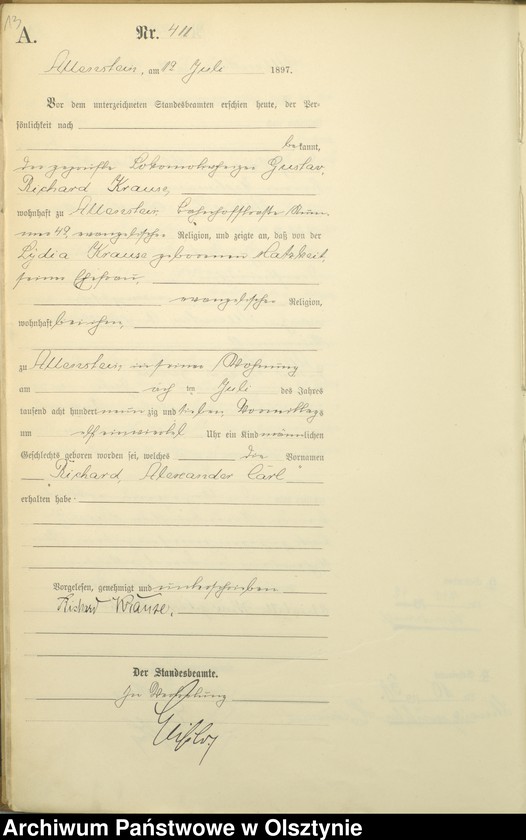 13
A.
Nr. 411
Allenstein, am 12 Juli 1897.
Vor dem unterzeichneten Standesbeamten erschien heute, der Per-
sönlichkeit nach
bekannt,
der geprüfte Lokomotivheizer Gustav
Richard Krause,
wohnhaft zu Allenstein, Bahnhofstraße Num-
mer 49, evangelischer Religion, und zeigte an, daß von der
Lydia Krause geborenen Hatzkeit,
seiner Ehefrau,
evangelischer Religion,
wohnhaft bei ihm,
zu Allenstein, in seiner Wohnung
am ten Juli des Jahres
tausend acht hundert neunzig und sieben, Vormittags
um Uhr ein Kind männlichen
Geschlechts geboren worden sei, welches die Vornamen
"Richard, Alexander Carl"
erhalten habe
Vorgelesen, genehmigt und unterschrieben
Richard Krause.
Der Standesbeamte.
In Vertretung
Archiwum Państwowe w Olsztynie